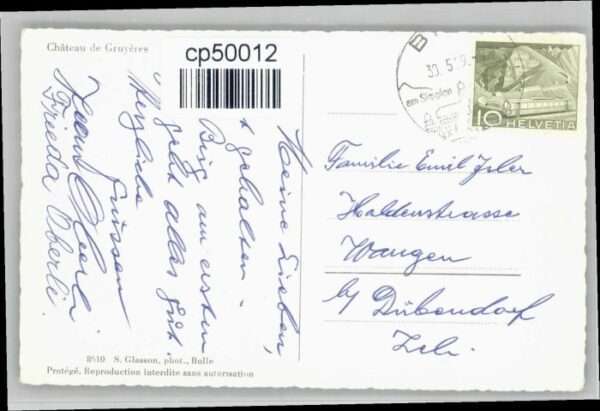 Château de Gruyères
cp50012
Meine Lieben,
gehalten.
Bin am ersten
geht alles gut.
Herzliche
Grüssen
Frieda Oberli
B
30. 5. 59.
am Simplon
10 HELVETIA
Familie Emil Isler
Haldenstrasse
Wangen
b/ Dübendorf
Zch.
8510 S. Glasson, phot., Bulle
Protégé. Reproduction interdite sans autorisation